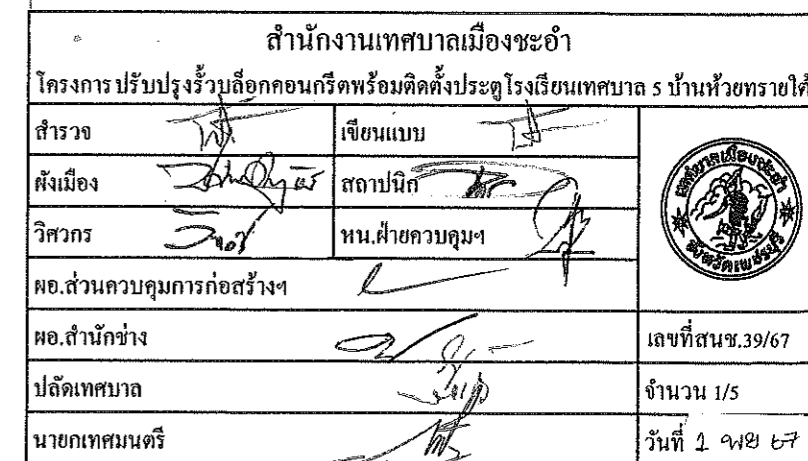 สำนักงานเทศบาลเมืองชะอำ
โครงการ ปรับปรุงรั้วบล็อกคอนกรีตพร้อมติดตั้งประตูโรงเรียนเทศบาล 5 บ้านห้วยทรายใต้
สำรวจ เขียนแบบ
ผังเมือง สถาปนิก
วิศวกร หน.ฝ่ายควบคุมฯ
เทศบาลเมืองชะอำ
จังหวัดเพชรบุรี
ผอ.ส่วนควบคุมการก่อสร้างฯ
ผอ.สำนักช่าง เลขที่สนช.39/67
ปลัดเทศบาล จำนวน 1/5
นายกเทศมนตรี วันที่ 1 พย 67